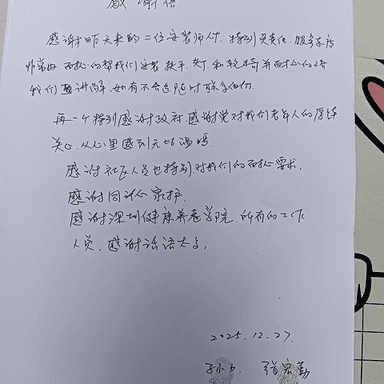 感谢信
感谢昨天来的二位安装师付，特别负责任，服务态度
非常好，耐心的帮我们安装扶手、灯和轮椅，并耐心的给
我们讲清，如有不合适随时联系他们。
再一个特别感谢政府感谢党对我们老年人的厚待
关心，从心里感到无比温暖。
感谢社区人员也特别对我们的耐心要求。
感谢同心家护
感谢深圳健康养老学院所有的工作
人员，感谢话语太多。
2025.12.27.
张宏勤